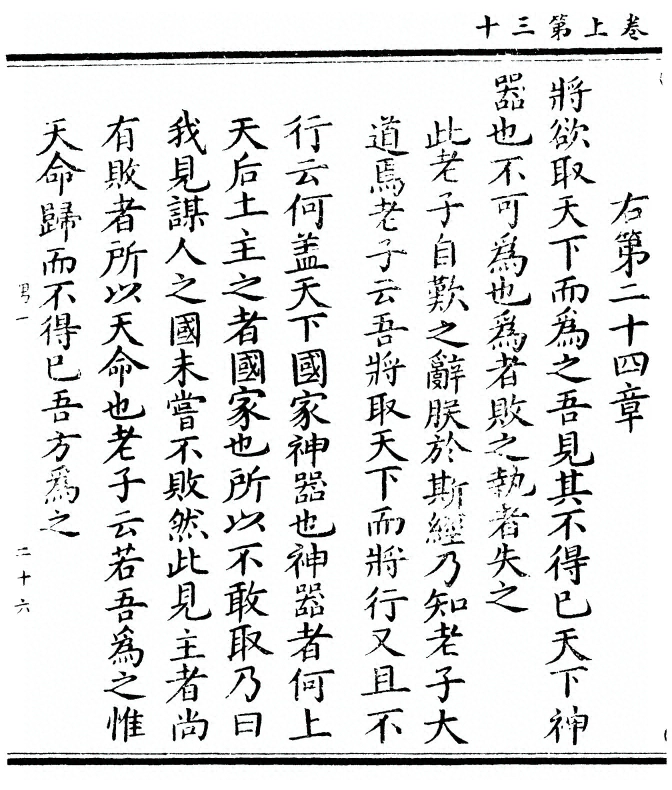 卷上第三十
右第二十四章
將欲取天下而爲之吾見其不得已天下神
器也不可爲也爲者敗之執者失之
此老子自歎之辭朕於斯經乃知老子大
道焉老子云吾將取天下而將行又且不
行云何盖天下國家神器也神器者何上
天后土主之者國家也所以不敢取乃曰
我見謀人之國未嘗不敗然此見主者尚
有敗者所以天命也老子云若吾爲之惟
天命歸而不得已吾方爲之
男一
二十六